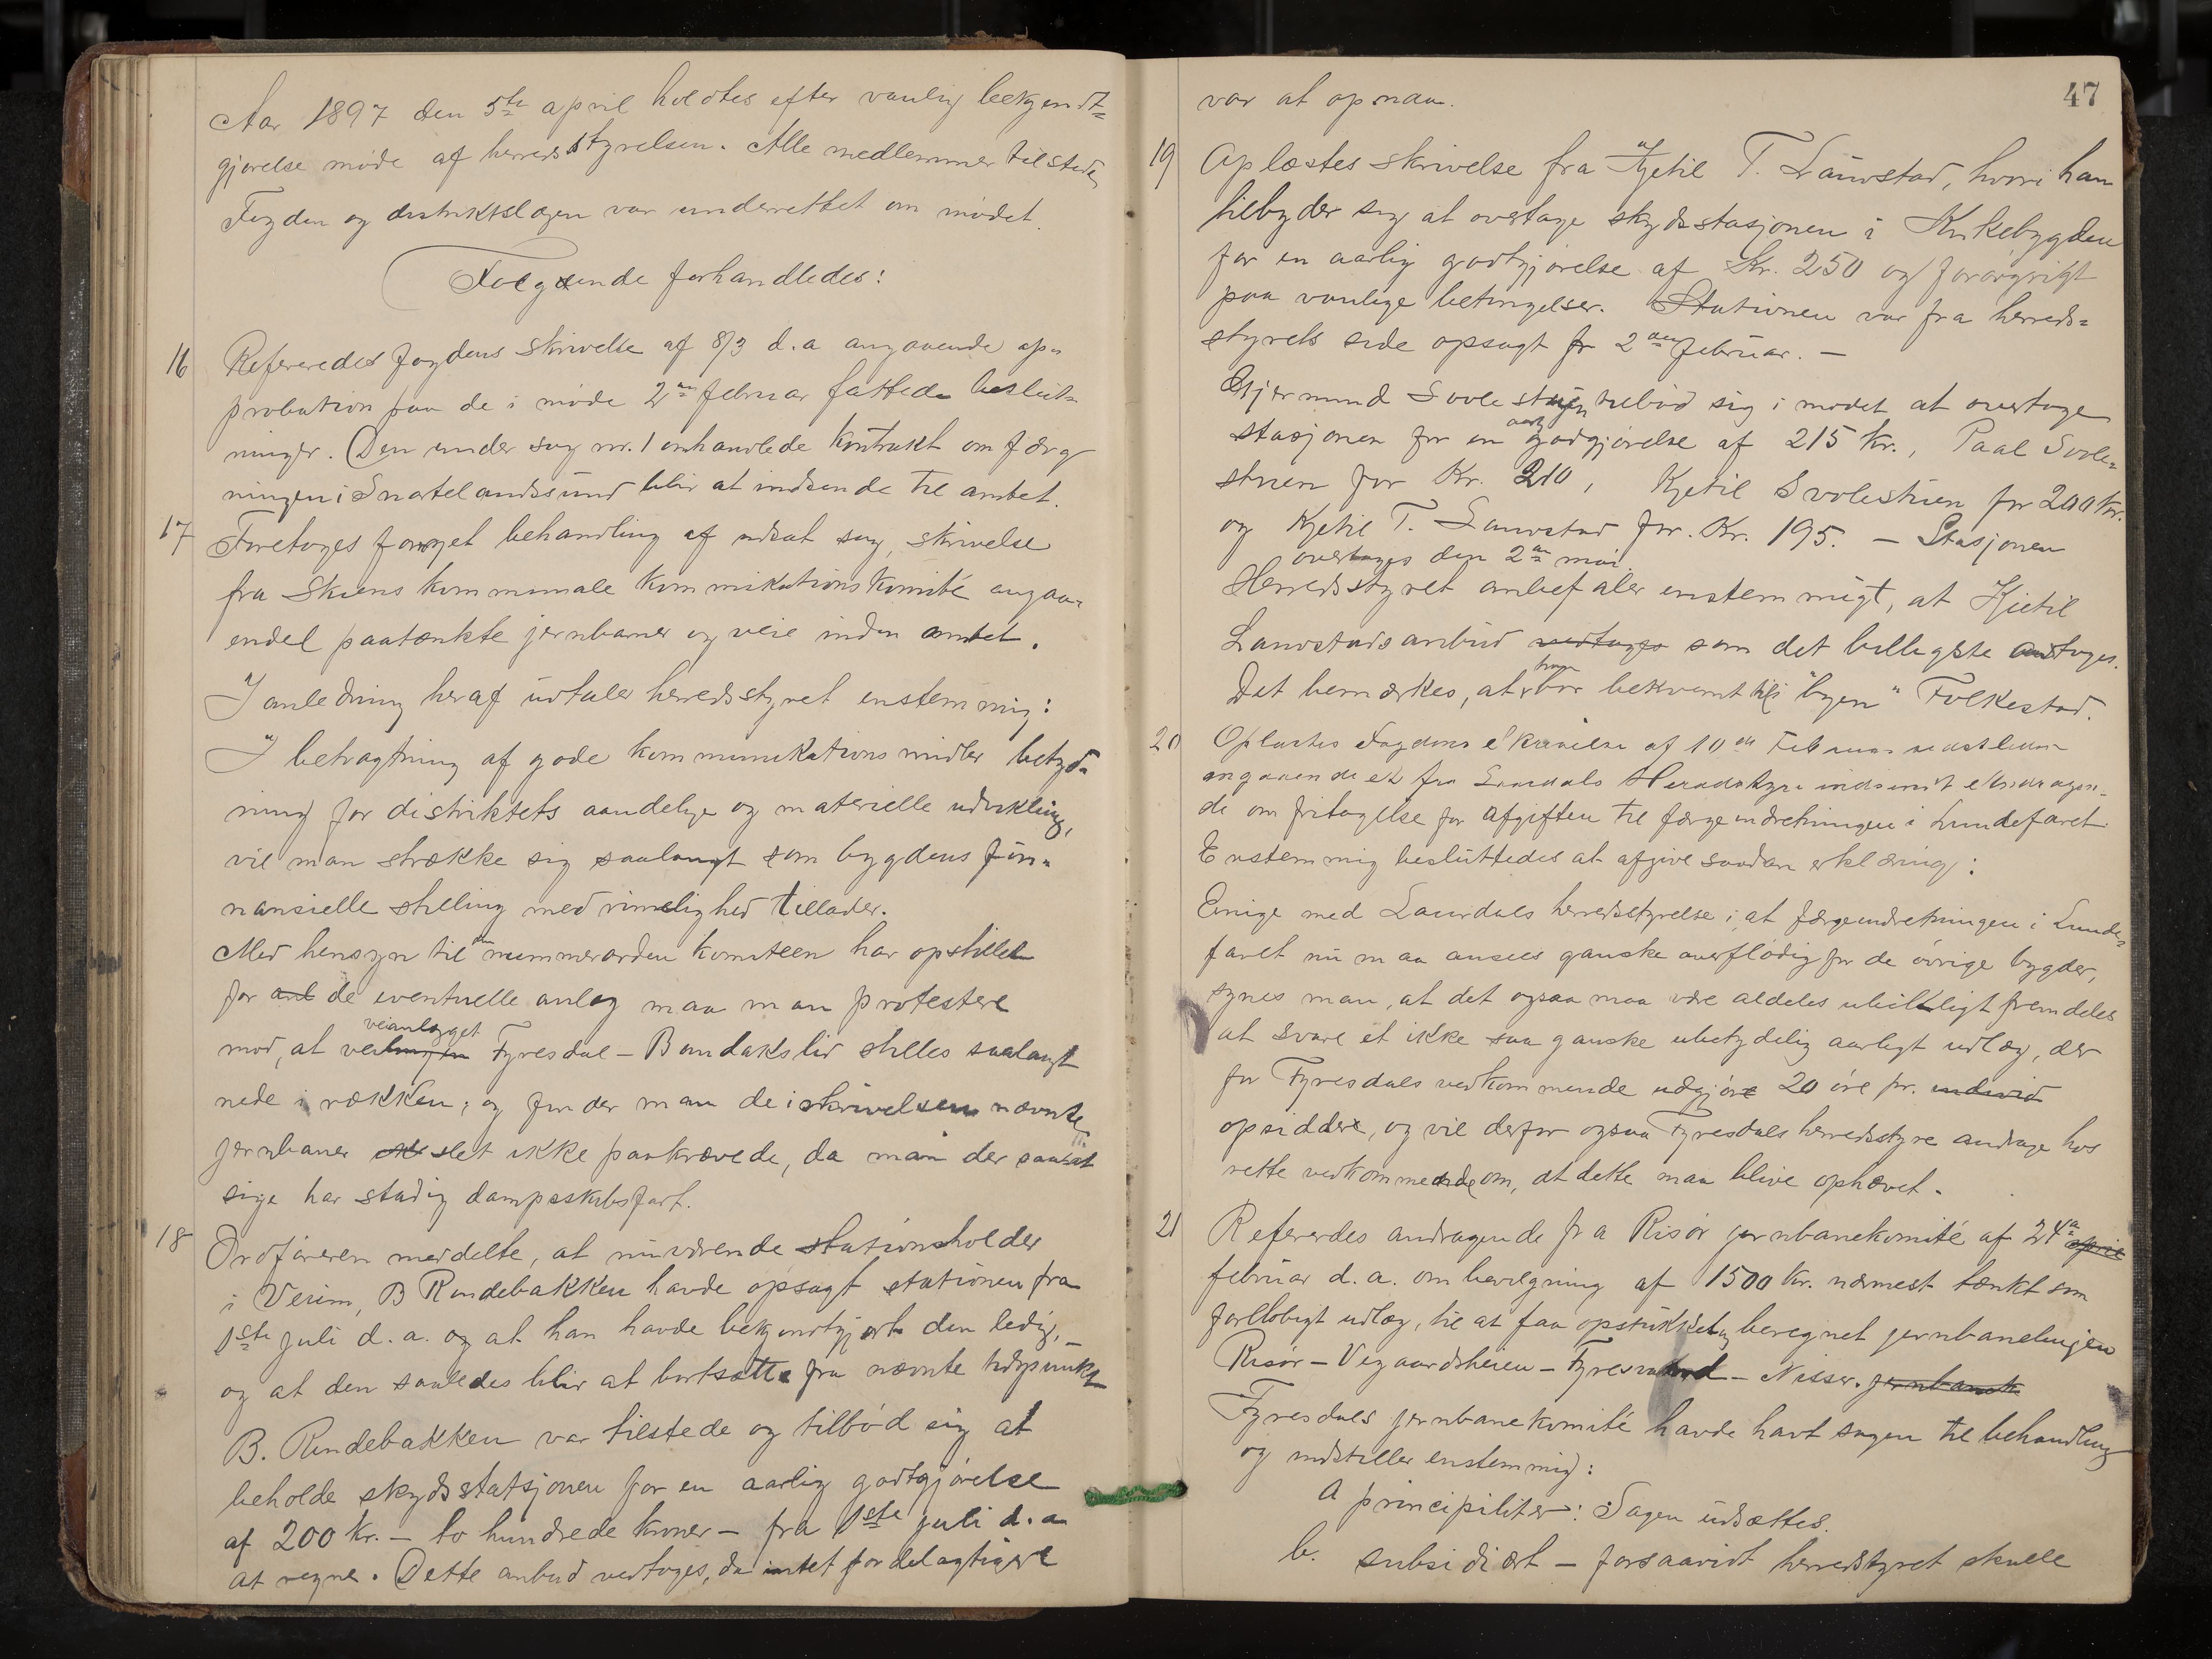 Aar 1897 den 5te april holdtes efter vanlig bekjendt=
gjørelse møde af herredsstyrelsen. Alle medlemmer tilstede,
Fogden og distriktslægen var underrettet om mødet.
Følgende forhandledes:
16 Refereredes fogdens skrivelse af 8/3 d.a angaaende ap=
probation paa de i møde 2den februar fattede beslut=
ninger. Den under sag nr. 1 omhandlede kontrakt om færg
ningen i Snartelandssund blir at indsende til amtet.
17 Foretoges fornyet behandling af udsat sag, skrivelse
fra Skiens kommunale kommunikationskomité angaa=
endel paatænkte jernbaner og veie inden amtet.
I anledning heraf udtaler herredsstyret enstemmig:
I betragtning af gode kommunikationsmidler betyd=
ning for distriktets aandelige og materielle udvikling,
vil man strække sig saalangt som bygdens fin=
nansielle stilling med rimelighed tillader.
Med hensyn til den nummerorden komiteen har opstillet
for anl de eventuelle anlæg maa man protestere
mod, at veianlægget Fyresdal – Bandakslid stilles saalangt
nede i rækken; og finder man de i skrivelsen nævnte
jernbaner slet ikke paakrævede, da man der saaat
sige har stadig dampskibsfart.
18 Ordføreren meddelte, at nuværende stationsholder
i Veum, B Rindebakken havde opsagt stationen fra
1ste juli d.a. og at han havde bekjendtgjort den ledig, –
og at den saaledes blir at bortsætte fra nævnte tidspunkt
B. Rindebakken var tilstede og tilbød sig at
beholde skydsstatsjonen for en aarlig godtgjørelse
af 200 kr. – to hundrede kroner – fra 1ste juli d.a
at regne. Dette anbud vedtoges, da intet fordelagtigere
47
var at opnaa.
19 Oplæstes skrivelse fra Kjetil T. Lauvstad, hvori han
tilbyder sig at overtage skydsstasjonen i Kirkebygden
for en aarlig godtgjørelse af Kr. 250 og forøvrigt
paa vanlige betingelser. Stationen var fra herreds=
styrets side opsagt fr 2den februar. –
Gjermund Svolestuen tilbød sig i mødet at overtage
stasjonen for en aarlig godgjørelse af 215 kr., Paal Svole=
stuen for Kr. 210, Kjetil Svolestuen for 200 kr.
og Kjetil T. Lauvstad for Kr. 195. – Stasjonen
overtages den 2den mai.
Herredsstyret anbefaler enstemmigt, at Kjetil
Lauvstads anbud vedtages som det billigste antages.
Det bemærkes, at han bor bekvemt til "byen" Folkestad.
20 Oplæstes Fogdens skrivelse af 10de Februar sidstleden
angaaende et fra Laurdals Herredstyre indsendt andragen=
de om fritagelse for afgiften til færgeindretningen i Lundefaret.
Enstemmig besluttedes at afgive saadan erklæring:
Enige med Laurdals herredsstyrelse i, at færgeindretningen i Lunde=
faret nu maa ansees ganske overflødig for de øvrige bygder,
synes man, at det ogsaa maa være aldeles ubilligt fremdeles
at svare et ikke saa ganske ubetydelig aarligt udlæg, der
for Fyresdals vedkommende udgjøre 20 øre pr. individ
opsiddere, og vil derfor ogsaa Fyresdals herredsstyre andrage hos
rette vedkommende om, at dette maa blive ophævet.
21 Refererdes andragende fra Risør jernbanekomité af 24de april
februar d.a. om bevilgning af 1500 kr. nærmest tænkt som
forløbigt udlæg, til at faa opstukket og beregnet jernbanelinjen
Risør – Vegaardsheien – Fyresvand – Nisser. jernbanek
Fyresdals jernbanekomité havde havt sagen til behandling
og indstiller enstemmig:
a principiliter: Sagen udsættes.
b. subsidiært – forsaavidt herredstyret skulle